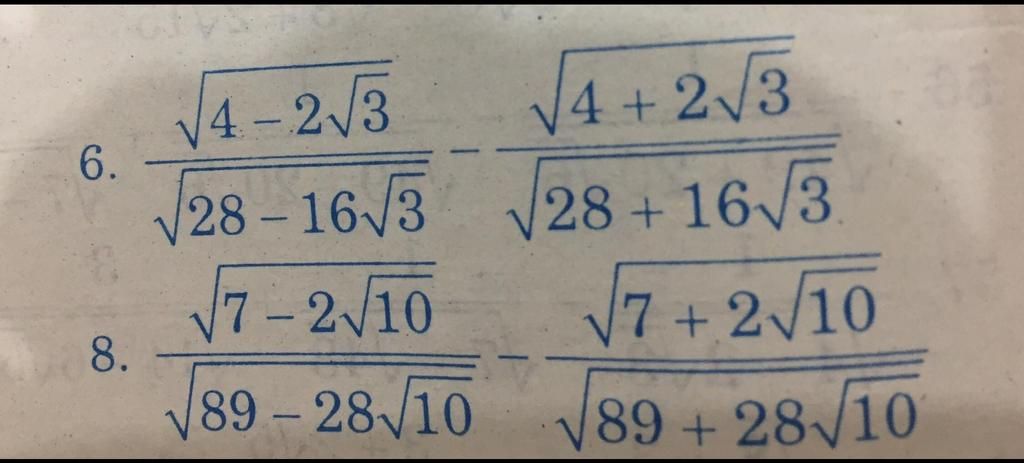 6. \frac{\sqrt{4 - 2\sqrt{3}}}{\sqrt{28 - 16\sqrt{3}}} - \frac{\sqrt{4 + 2\sqrt{3}}}{\sqrt{28 + 16\sqrt{3}}}
8. \frac{\sqrt{7 - 2\sqrt{10}}}{\sqrt{89 - 28\sqrt{10}}} - \frac{\sqrt{7 + 2\sqrt{10}}}{\sqrt{89 + 28\sqrt{10}}}